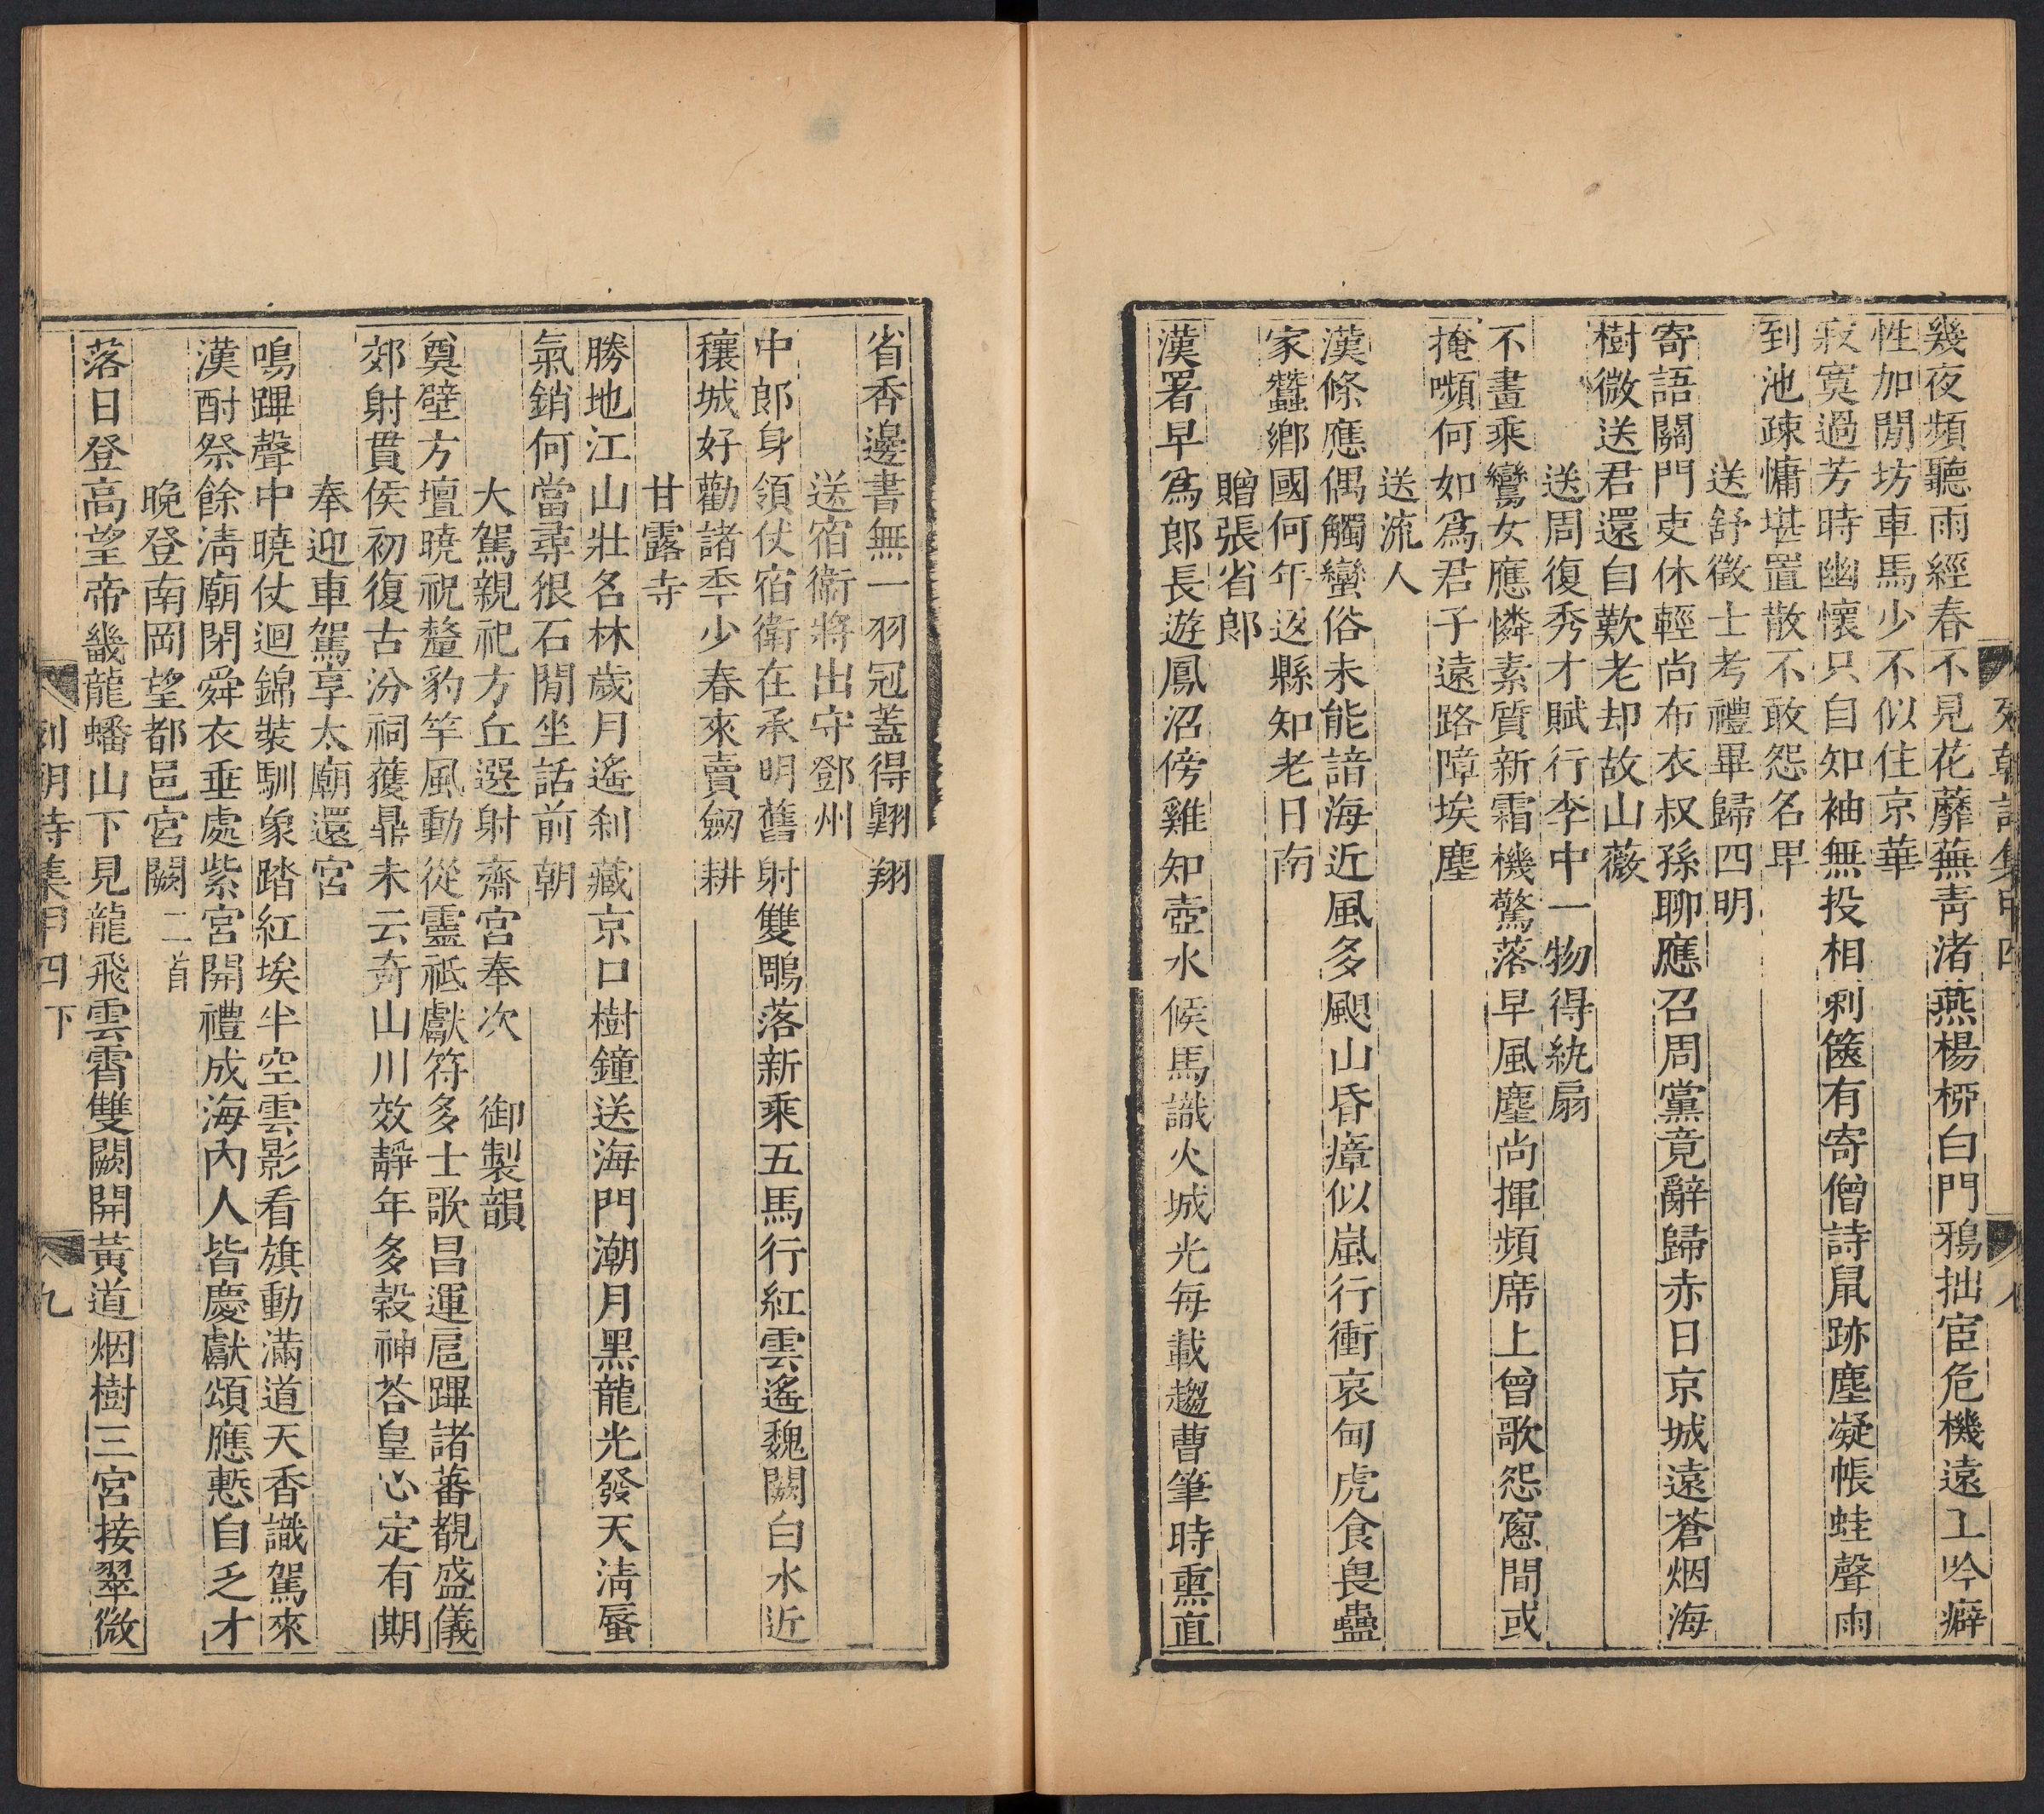 幾夜頻聽雨經春不見花蘼蕪青渚燕楊桺白門鴉拙宦危機遠工吟癖
性加閒坊車馬少不似住京華
寂寞過芳時幽懷只自知袖無投相刺篋有寄僧詩鼠跡塵凝帳蛙聲雨
到池疎慵堪置散不敢怨名卑
送舒徵士考禮畢歸四明
寄語關門吏休輕尚布衣叔孫聊應召周黨竟辭歸赤日京城遠蒼烟海
樹微送君還自歎老却故山薇
送周復秀才賦行李中一物得紈扇
不畫乘鸞女應憐素質新霜機驚落早風塵尚揮頻席上曾歌怨窓間或
掩嚬何如爲君子遠路障埃塵
送流人
漢條應偶觸蠻俗未能諳海近風多颶山昏瘴似嵐行衝哀甸虎食畏蠱
家蠶鄉國何年返縣知老日南
贈張省郎
漢署早爲郎長遊鳳沼傍雞知壺水候馬識火城光每載趨曹筆時熏直
省香邊書無一羽冠蓋得翺翔
送宿衛將出守鄧州
中郎身領仗宿衛在承明舊射雙鵰落新乘五馬行紅雲遙魏闕白水近
穰城好勸諸季少春來賣劒耕
甘露寺
勝地江山壯名林歲月遙刹藏京口樹鐘送海門潮月黑龍光發天淸蜃
氣銷何當尋很石閒坐話前朝
大駕親祀方丘選射齋宮奉次 御製韻
奠壁方壇曉祝釐豹竿風動從靈祗獻符多士歌昌運扈蹕諸蕃覩盛儀
郊射貫侯初復古汾祠蒦鼎未云奇山川效靜年多穀神荅皇心定有期
奉迎車駕享太廟還宮
鳴蹕聲中曉仗迴錦裝馴象踏紅埃半空雲影看旗動滿道天香識駕來
漢酎祭餘淸廟閉舜衣垂處紫宮開禮成海內人皆慶獻頌應慙自乏才
晚登南岡望都邑宮闕二首
落日登高望帝畿龍蟠山下見龍飛雲霄雙闕開黃道烟樹三宮接翠微
列朝詩集甲四下 九